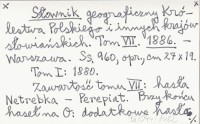 Słownik geograficzny Kró-
lestwa Polskiego i innych krajów
słowiańskich. Tom VII. 1886. –
Warszawa. Ss, 960, opr., cm. 27 x 19.
Tom I: 1880.
Zawartość tomu VII: hasła
Netrebka – Perepiat. Przy końcu
haseł na O: dodatkowe hasła